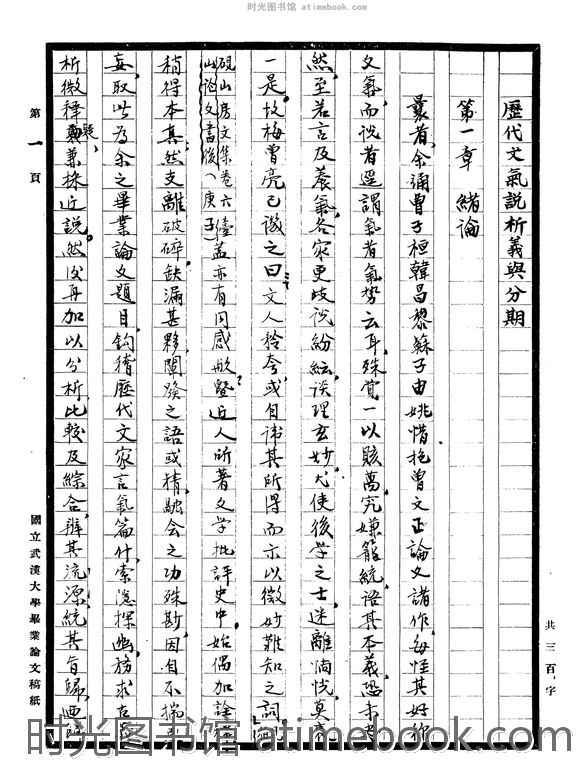 时光图书馆 • atimebook.com
歷代文氣說析義與分期
第一章 緒論
曩者，余誦曹子桓韓昌黎蘇子由姚惜抱曾文正論文諸作，每怪其好作
文氣，而說者逕謂氣者氣勢云耳，殊覺一以賅萬，究嫌籠統，語其本義，恐未必
然，至若言及養氣，各家更歧說紛紜，談理玄妙，尤使後學之士，迷離惝恍，莫
一是。故梅曾亮已譏之曰：文人矜夸，或自諱其所得，而示以微妙難知之詞
硯山房文集卷六
論文書後（庚子）
蓋亦有同感歟。暨近人所著文學批評史中，始偶加詮
稍得本真，然支離破碎，缺漏甚夥，闡發之語或精，融会之功殊尠，因自不揣
妄，取此為余之畢業論文題目，鉤稽歷代文家言氣篇什，索隱探幽，務求
析微釋疑，兼採近說。然後再加以分析，比較及綜合，辨其流源，統其旨歸，
第一頁
國立武漢大學畢業論文稿紙
共三百字
时光图书馆 www.atimebook.com